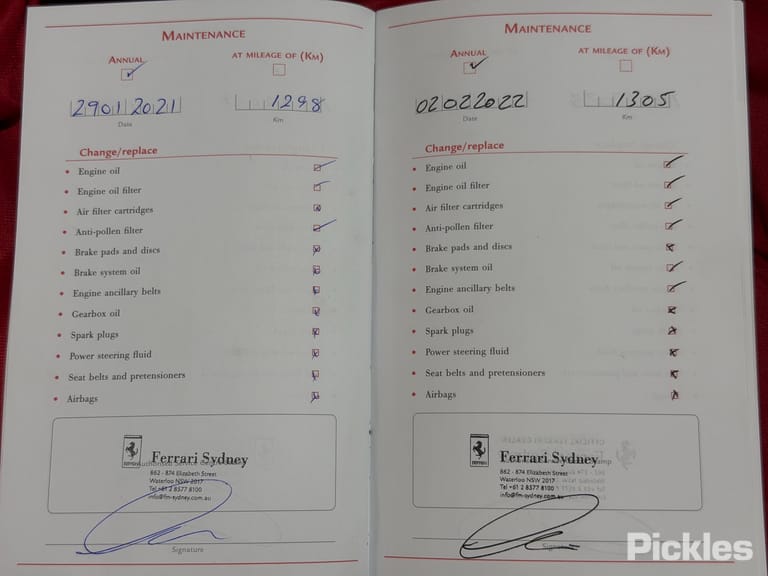 MAINTENANCE
ANNUAL
AT MILEAGE OF (KM)
29012021
1298
Date
Km
Change/replace
• Engine oil
• Engine oil filter
• Air filter cartridges
• Anti-pollen filter
• Brake pads and discs
• Brake system oil
• Engine ancillary belts
• Gearbox oil
• Spark plugs
• Power steering fluid
• Seat belts and pretensioners
• Airbags
Ferrari Sydney
862 - 874 Elizabeth Street
Waterloo NSW 2017
Tel +61 2 8577 8100
info@fm-sydney.com.au
Signature
MAINTENANCE
ANNUAL
AT MILEAGE OF (KM)
02022022
1305
Date
Km
Change/replace
• Engine oil
• Engine oil filter
• Air filter cartridges
• Anti-pollen filter
• Brake pads and discs
• Brake system oil
• Engine ancillary belts
• Gearbox oil
• Spark plugs
• Power steering fluid
• Seat belts and pretensioners
• Airbags
Ferrari Sydney
862 - 874 Elizabeth Street
Waterloo NSW 2017
Tel +61 2 8577 8100
info@fm-sydney.com.au
Signature
Pickles